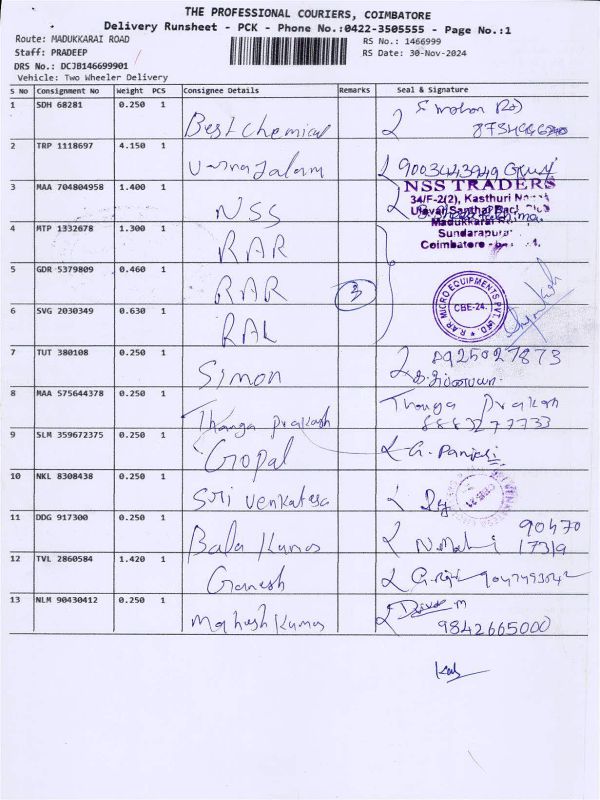 THE PROFESSIONAL COURIERS, COIMBATORE
Delivery Runsheet - PCK - Phone No.:0422-3505555 - Page No.:1
Route: MADUKKARAI ROAD
RS No.: 1466999
Staff: PRADEEP
RS Date: 30-Nov-2024
DRS No.: DCJB146699901
Vehicle: Two Wheeler Delivery
S No Consignment No Weight PCS Consignee Details Remarks Seal & Signature
1 SDH 68281 0.250 1 Best Chemical
2 TRP 1118697 4.150 1
3 MAA 704804958 1.400 1 NSS
NSS TRADERS
34/F-2(2), Kasthuri
Madukkarai
Sundarapura
Coimbatore
4 MTP 1332678 1.300 1 RAR
5 GDR 5379809 0.460 1 RAR 3
RAR MICRO EQUIPMENTS PVT. LTD.
CBE-24.
6 SVG 2030349 0.630 1
7 TUT 380108 0.250 1 Simon
8 MAA 575644378 0.250 1 Thanga prakash Thanga Prakash
8883277733
9 SLM 359672375 0.250 1 Gopal
10 NKL 8308438 0.250 1 Sri Venkatesa
11 DDG 917300 0.250 1 Bala Kumar 90470
17319
12 TVL 2860584 1.420 1 Ganesh
13 NLM 90430412 0.250 1 Mahesh Kumar
9842665000